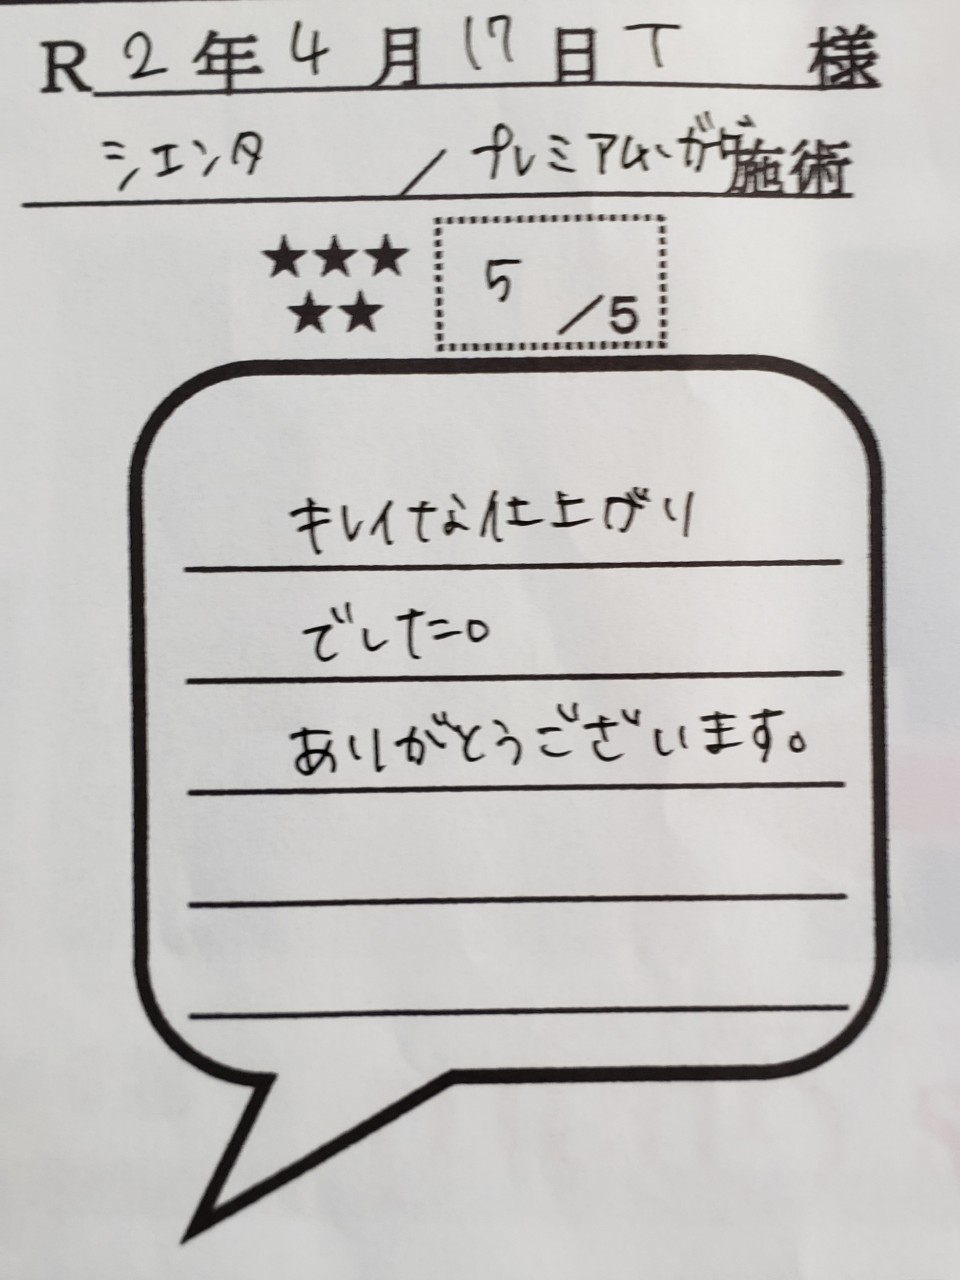 R2年4月17日T 様
シエンタ / プレミアム、ガーダ施術
★★★
★★
5/5
キレイな仕上がり
でした。
ありがとうございます。